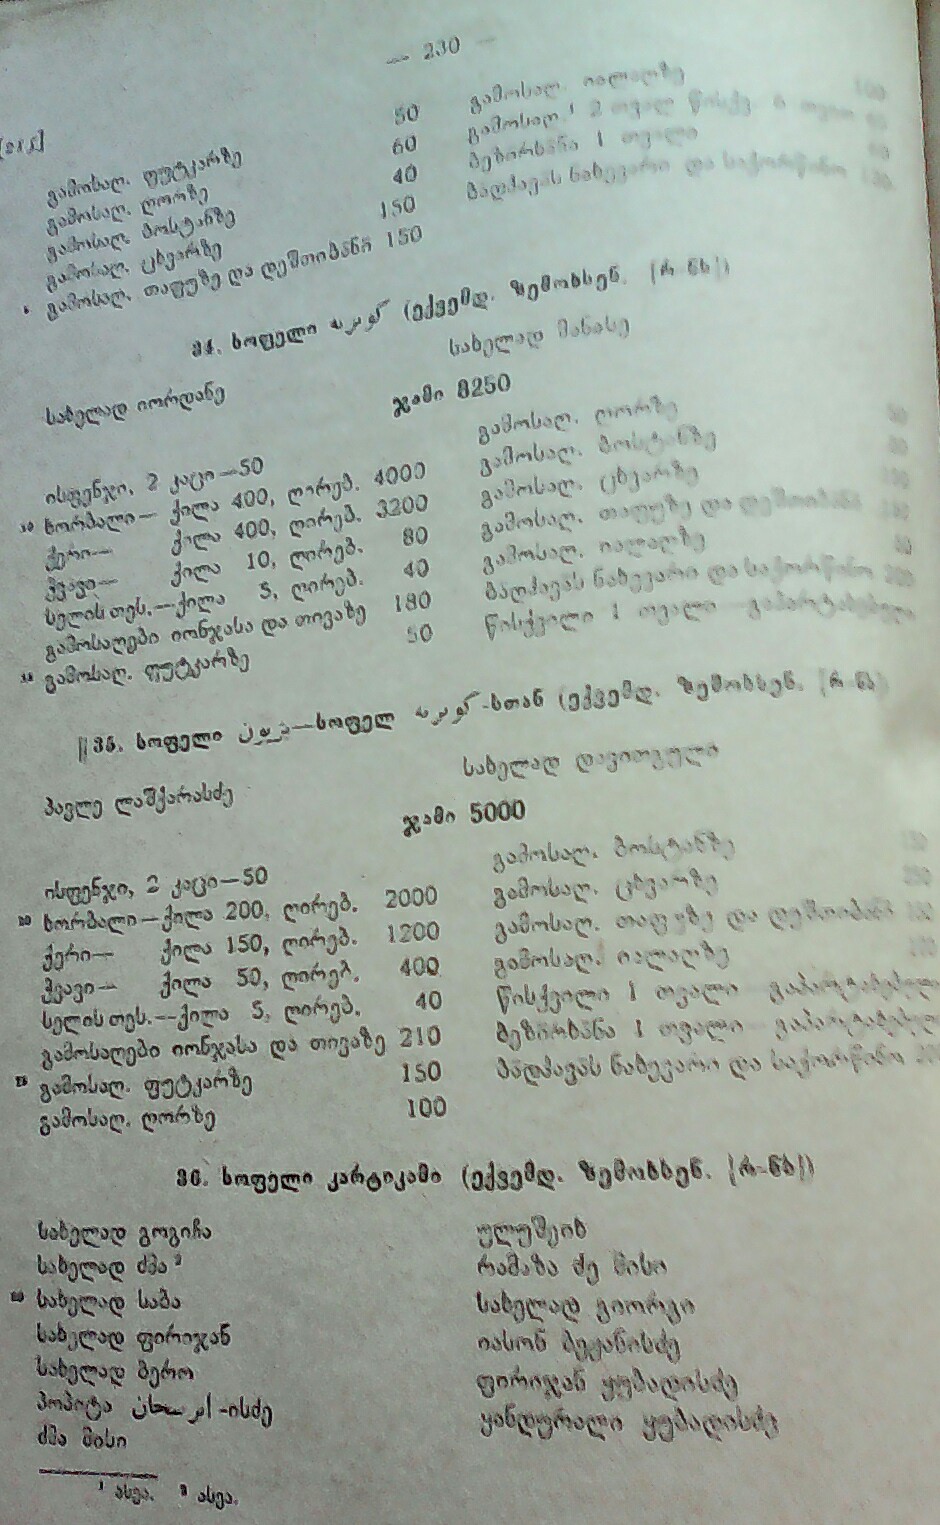 — 230 —
გამოსაღ. ფუტკარზე 50
გამოსაღ. ღორზე 60
გამოსაღ. ბოსტანზე 40
გამოსაღ. ცხვარზე 150
გამოსაღ. თაფუზე და დეშთიბანზე 150
გამოსაღ. იალაღზე 100
გამოსაღ.¹ 2 თვალ წისქვ. 6 თვით
ბეზირხანა 1 თვალი
ბადჰავას ნახევარი და საქორწინო
34. სოფელი (ექვემდ. ზემოხსენ. [რ-ნს])
სახელად იორდანე
სახელად მანასე
ჯამი 8250
ისფენჯი, 2 კაცი—50
10 ხორბალი— ქილა 400, ღირებ. 4000
ქერი— ქილა 400, ღირებ. 3200
ჭვავი— ქილა 10, ღირებ. 80
სელის თეს.—ქილა 5, ღირებ. 40
გამოსაღები იონჯასა და თივაზე 180
15 გამოსაღ. ფუტკარზე 50
გამოსაღ. ღორზე
გამოსაღ. ბოსტანზე
გამოსაღ. ცხვარზე
გამოსაღ. თაფუზე და დეშთიბანზე
გამოსაღ. იალაღზე
ბადჰავას ნახევარი და საქორწინო
წისქვილი 1 თვალი—გაპარტახებული
||35. სოფელი —სოფელ كومرسه-სთან (ექვემდ. ზემოხსენ. [რ-ნს])
პავლე ლაშქარასძე
სახელად დავითგული
ჯამი 5000
ისფენჯი, 2 კაცი—50
20 ხორბალი—ქილა 200, ღირებ. 2000
ქერი— ქილა 150, ღირებ. 1200
ჭვავი— ქილა 50, ღირებ. 400
სელის თეს.—ქილა 5, ღირებ. 40
გამოსაღები იონჯასა და თივაზე 210
25 გამოსაღ. ფუტკარზე 150
გამოსაღ. ღორზე 100
გამოსაღ. ბოსტანზე
გამოსაღ. ცხვარზე
გამოსაღ. თაფუზე და დეშთიბანზე
გამოსაღ. იალაღზე
წისქვილი 1 თვალი—გაპარტახებული
ბეზირხანა 1 თვალი—გაპარტახებული
ბადჰავას ნახევარი და საქორწინო
36. სოფელი კარტიკამი (ექვემდ. ზემოხსენ. [რ-ნს])
სახელად გოგიჩა
სახელად ძმა ²
30 სახელად საბა
სახელად ფირიჯან
სახელად ბერო
პოპიტა -ისძე
ძმა მისი
ულუშეიხ
რამაზა ძე მისი
სახელად გიორგი
იასონ ბეჟანისძე
ფირიჯან ყუბადისძე
ყანდურალი ყუბადისძე
¹ ასეა. ² ასეა.